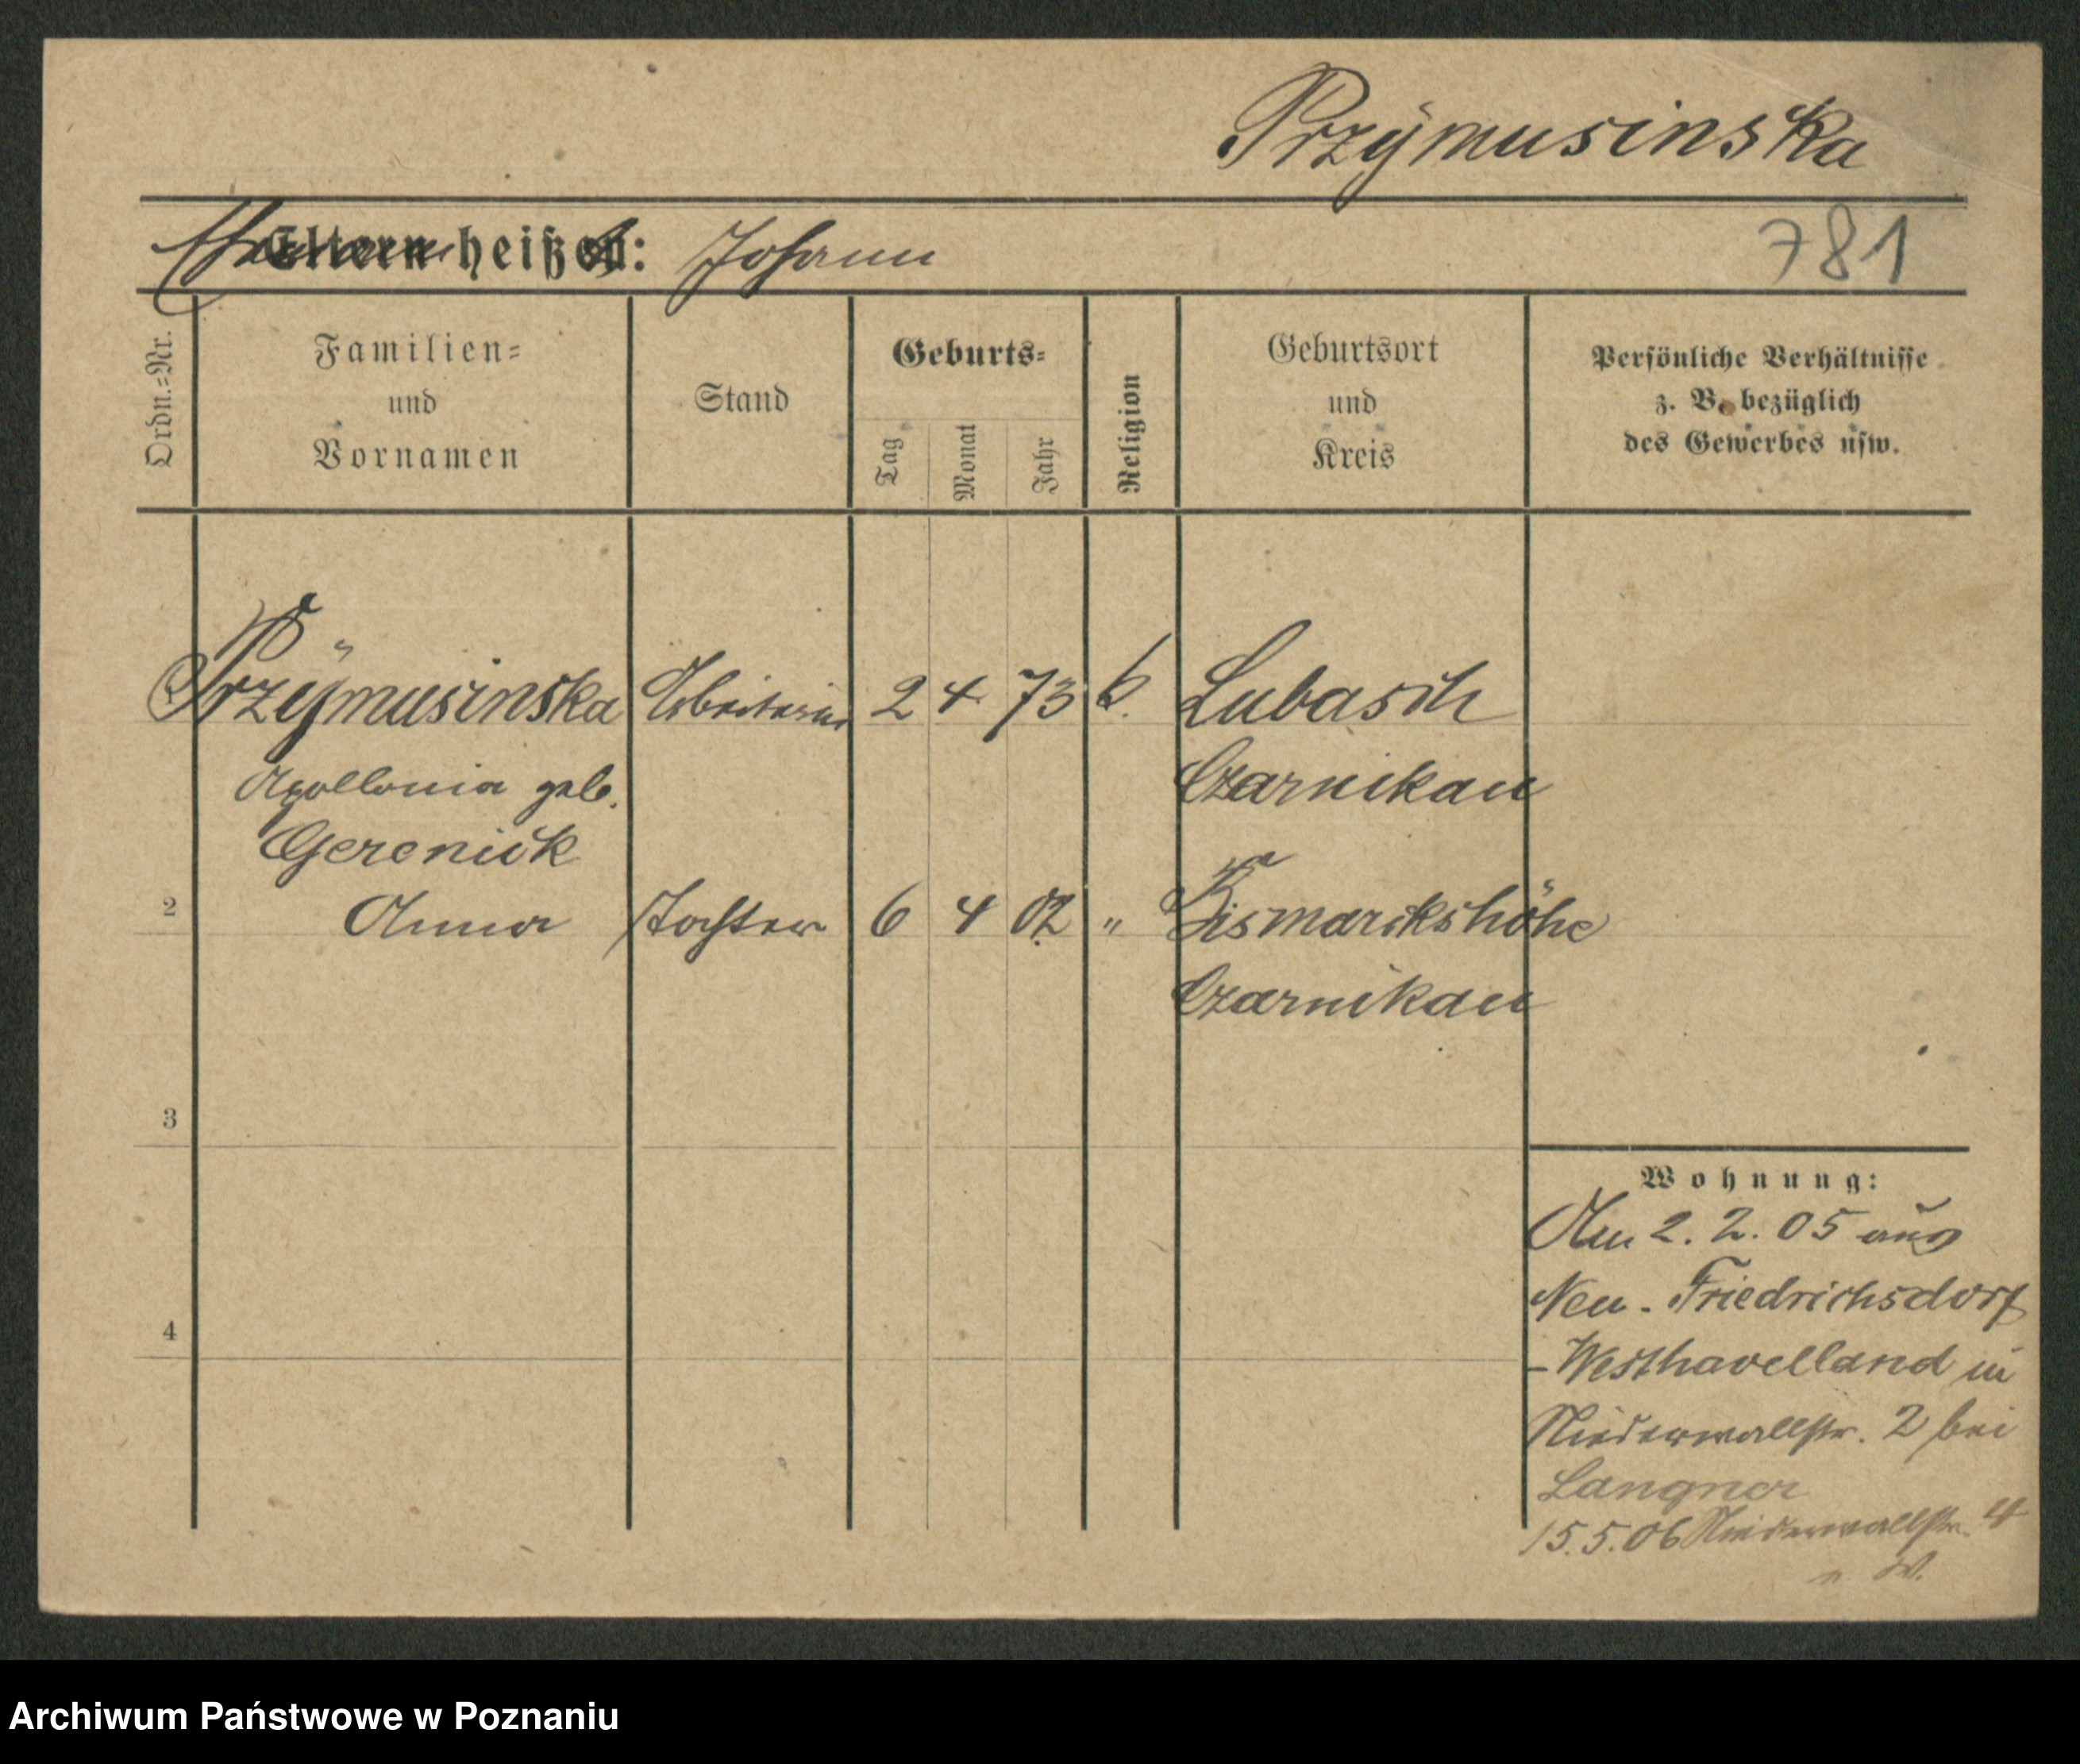 Przÿmusinska
Eltern heißen: Johann
781
Ordn.=Nr.
Familien=
und
Vornamen
Stand
Geburts=
Tag
Monat
Jahr
Religion
Geburtsort
und
Kreis
Persönliche Verhältnisse
z. B. bezüglich
des Gewerbes usw.
Przÿmusinska Arbeiterin 2 4 73 k. Lubasch
Apollonia geb. Czarnikau
Gerenick
2 Anna Tochter 6 4 02 " Bismarckshöhe
Czarnikau
3
4
Wohnung:
Am 2. 2. 05 aus
Neu-Friedrichsdorf
-Westhavelland in
Niederwallstr. 2 bei
Langner
15.5.06 Niederwallstr. 4
Archiwum Państwowe w Poznaniu